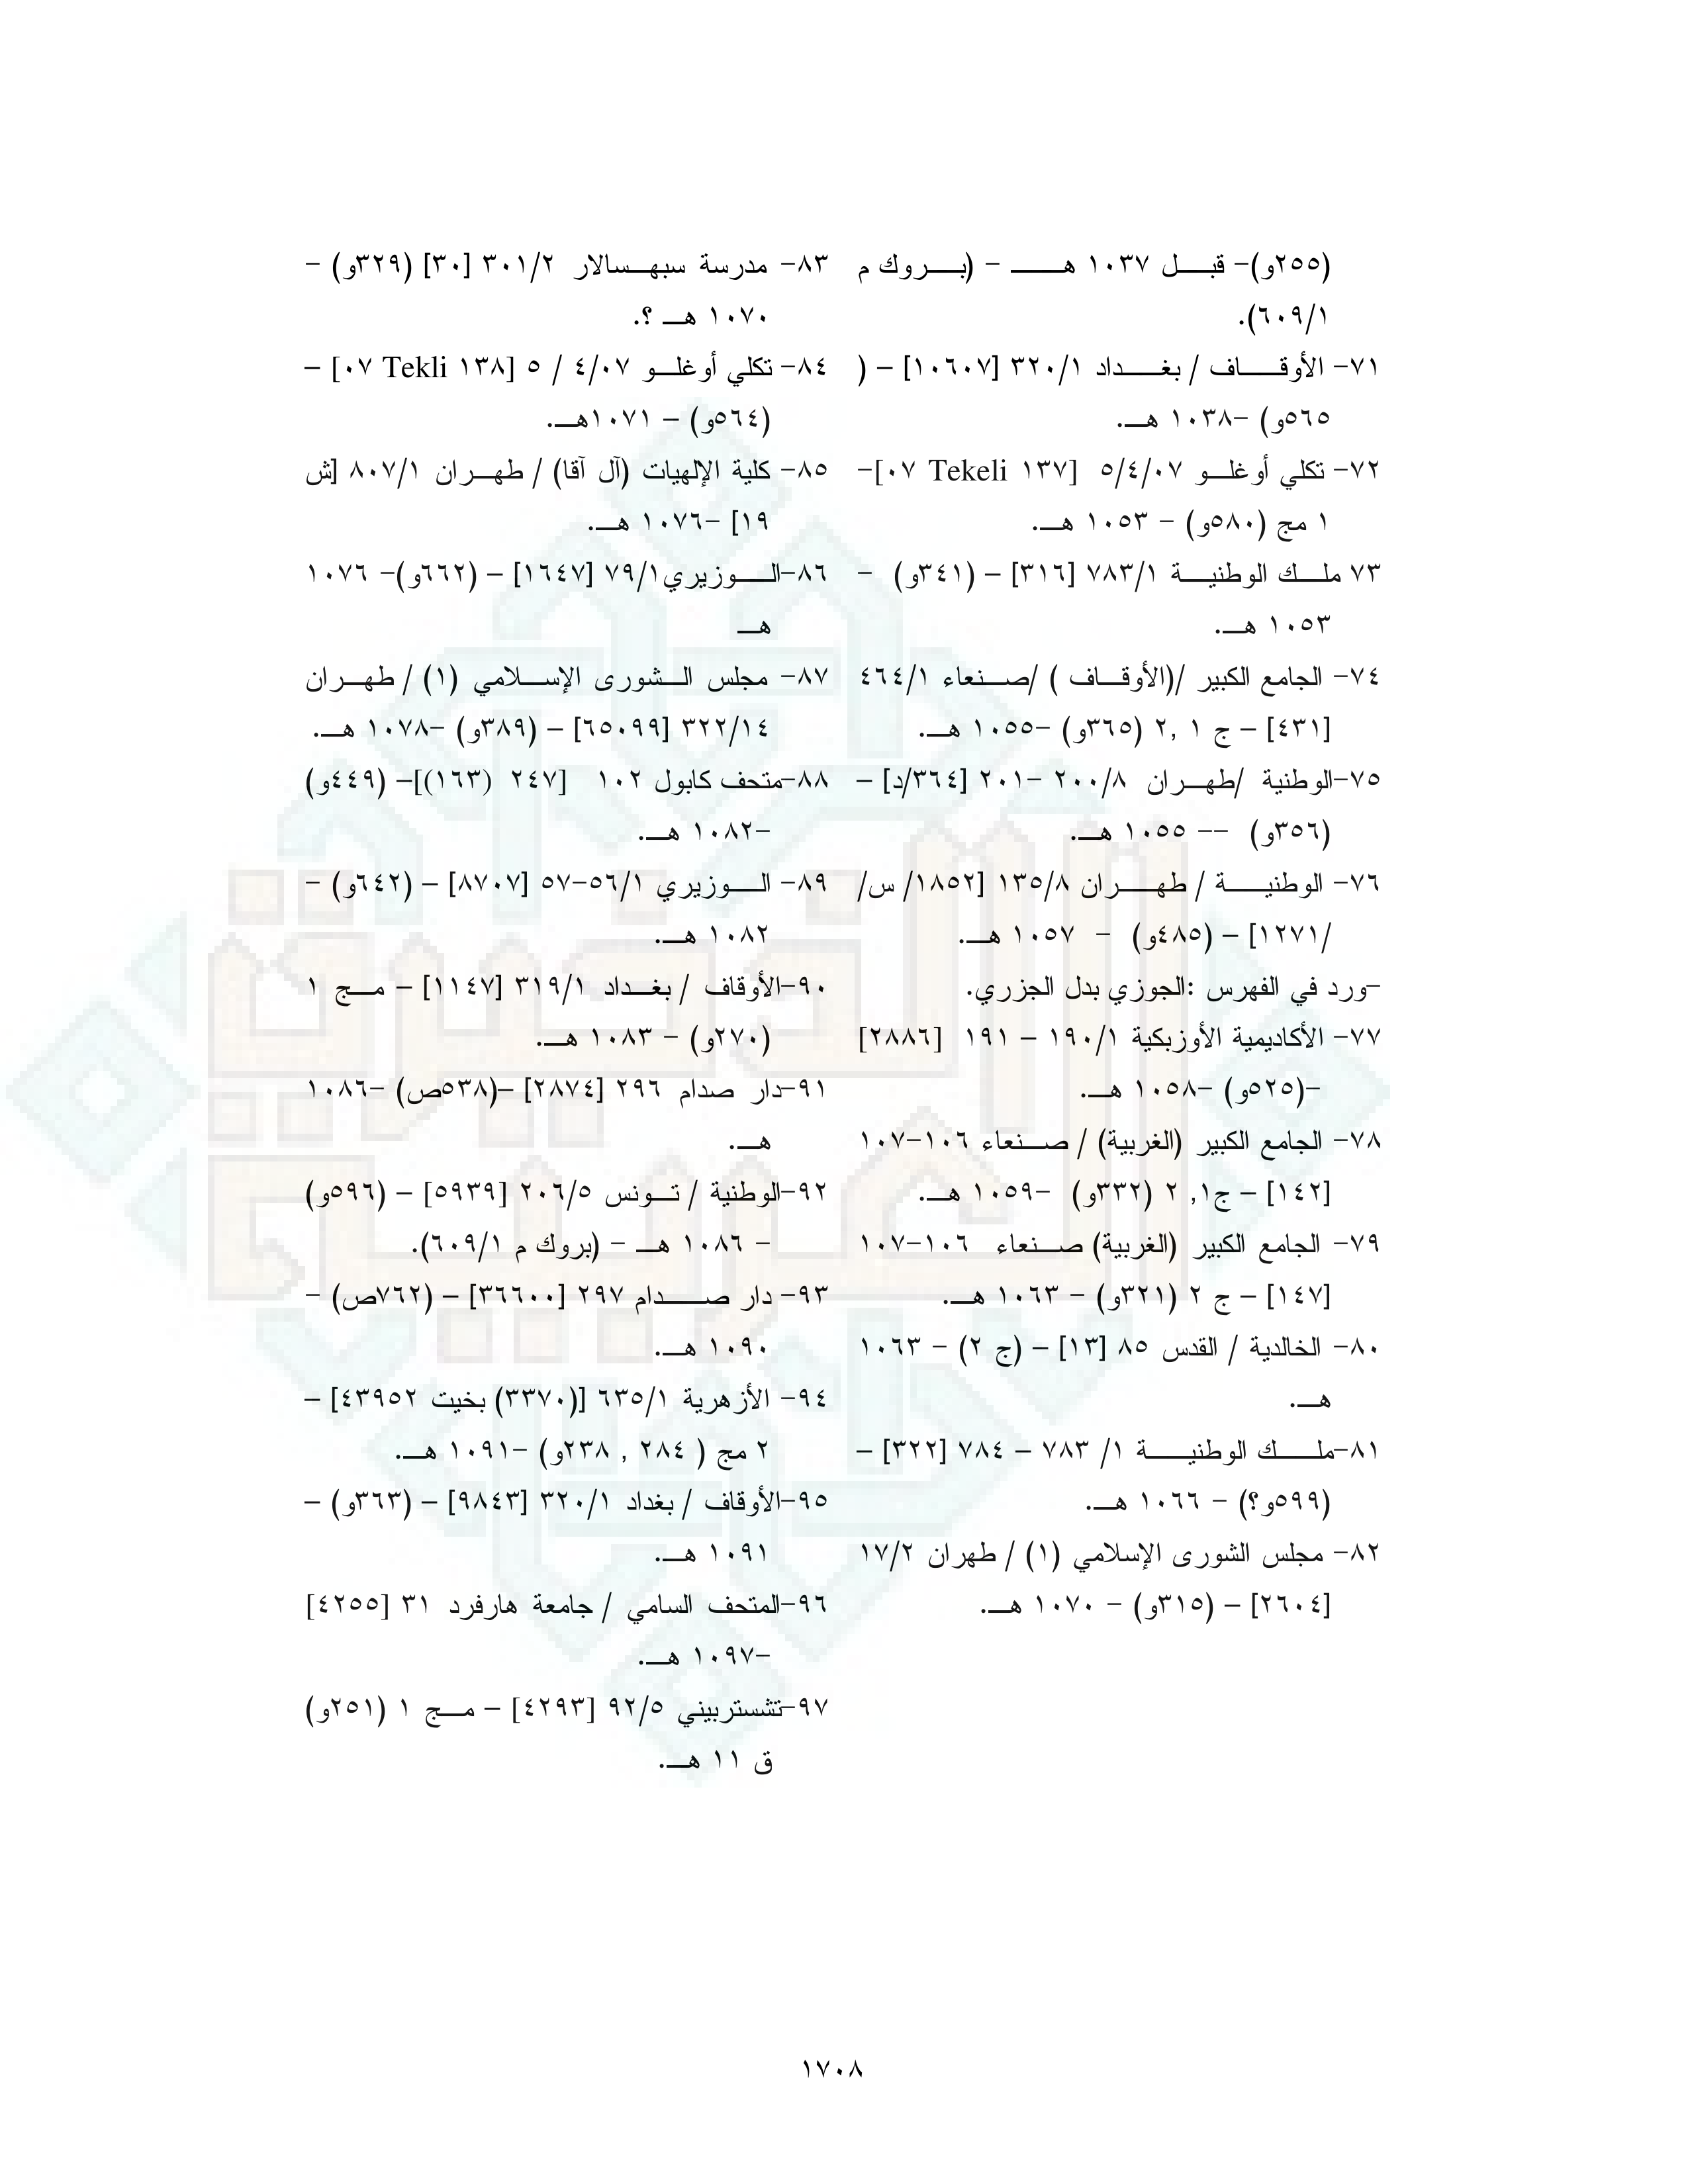 (٢٥٥و)- قبل ١٠٣٧ هـ - (بروك م
٦٠٩/١).
٧١- الأوقاف / بغداد ٣٢٠/١ [١٠٦٠٧] – (
٥٦٥و) -١٠٣٨ هـ.
٧٢- تكلي أوغلو ٥/٤/٠٧ [٠٧ Tekeli ١٣٧]-
١ مج (٥٨٠و) - ١٠٥٣ هـ.
٧٣ ملك الوطنية ٧٨٣/١ [٣١٦] – (٣٤١و) -
١٠٥٣ هـ.
٧٤- الجامع الكبير /(الأوقاف ) /صنعاء ٤٦٤/١
[٤٣١] – ج ١ ,٢ (٣٦٥و) -١٠٥٥ هـ.
٧٥-الوطنية /طهران ٢٠٠/٨ -٢٠١ [٣٦٤/د] –
(٣٥٦و) -- ١٠٥٥ هـ.
٧٦- الوطنية / طهران ١٣٥/٨ [١٨٥٢/ س/
/١٢٧١] – (٤٨٥و) - ١٠٥٧ هـ.
-ورد في الفهرس :الجوزي بدل الجزري.
٧٧- الأكاديمية الأوزبكية ١٩٠/١ – ١٩١ [٢٨٨٦]
-(٥٢٥و) -١٠٥٨ هـ.
٧٨- الجامع الكبير (الغربية) / صنعاء ١٠٦-١٠٧
[١٤٢] – ج١, ٢ (٣٣٢و) -١٠٥٩ هـ.
٧٩- الجامع الكبير (الغربية) صنعاء ١٠٦-١٠٧
[١٤٧] – ج ٢ (٣٢١و) - ١٠٦٣ هـ.
٨٠- الخالدية / القدس ٨٥ [١٣] – (ج ٢) - ١٠٦٣
هـ.
٨١-ملك الوطنية ١/ ٧٨٣ – ٧٨٤ [٣٢٢] –
(٥٩٩و؟) - ١٠٦٦ هـ.
٨٢- مجلس الشورى الإسلامي (١) / طهران ١٧/٢
[٢٦٠٤] – (٣١٥و) - ١٠٧٠ هـ.
٨٣- مدرسة سبهسالار ٣٠١/٢ [٣٠] (٣٢٩و) -
١٠٧٠ هـ ؟.
٨٤- تكلي أوغلو ٤/٠٧ / ٥ [٠٧ Tekli ١٣٨] –
(٥٦٤و) – ١٠٧١هـ.
٨٥- كلية الإلهيات (آل آقا) / طهران ٨٠٧/١ [ش
١٩] -١٠٧٦ هـ.
٨٦-الوزيري٧٩/١ [١٦٤٧] – (٦٦٢و)- ١٠٧٦
هـ
٨٧- مجلس الشورى الإسلامي (١) / طهران
٣٢٢/١٤ [٦٥٠٩٩] – (٣٨٩و) -١٠٧٨ هـ.
٨٨-متحف كابول ١٠٢ [٢٤٧ (١٦٣)]– (٤٤٩و)
-١٠٨٢ هـ.
٨٩- الوزيري ٥٦/١-٥٧ [٨٧٠٧] – (٦٤٢و) -
١٠٨٢ هـ.
٩٠-الأوقاف / بغداد ٣١٩/١ [١١٤٧] – مج ١
(٢٧٠و) - ١٠٨٣ هـ.
٩١-دار صدام ٢٩٦ [٢٨٧٤] –(٥٣٨ص) -١٠٨٦
هـ.
٩٢-الوطنية / تونس ٢٠٦/٥ [٥٩٣٩] – (٥٩٦و)
- ١٠٨٦ هـ - (بروك م ٦٠٩/١).
٩٣- دار صدام ٢٩٧ [٣٦٦٠٠] – (٧٦٢ص) -
١٠٩٠ هـ.
٩٤- الأزهرية ٦٣٥/١ [(٣٣٧٠) بخيت ٤٣٩٥٢] –
٢ مج ( ٢٨٤ , ٢٣٨و) -١٠٩١ هـ.
٩٥-الأوقاف / بغداد ٣٢٠/١ [٩٨٤٣] – (٣٦٣و) –
١٠٩١ هـ.
٩٦-المتحف السامي / جامعة هارفرد ٣١ [٤٢٥٥]
-١٠٩٧ هـ.
٩٧-تشستربيني ٩٢/٥ [٤٢٩٣] – مج ١ (٢٥١و)
ق ١١ هـ.
١٧٠٨